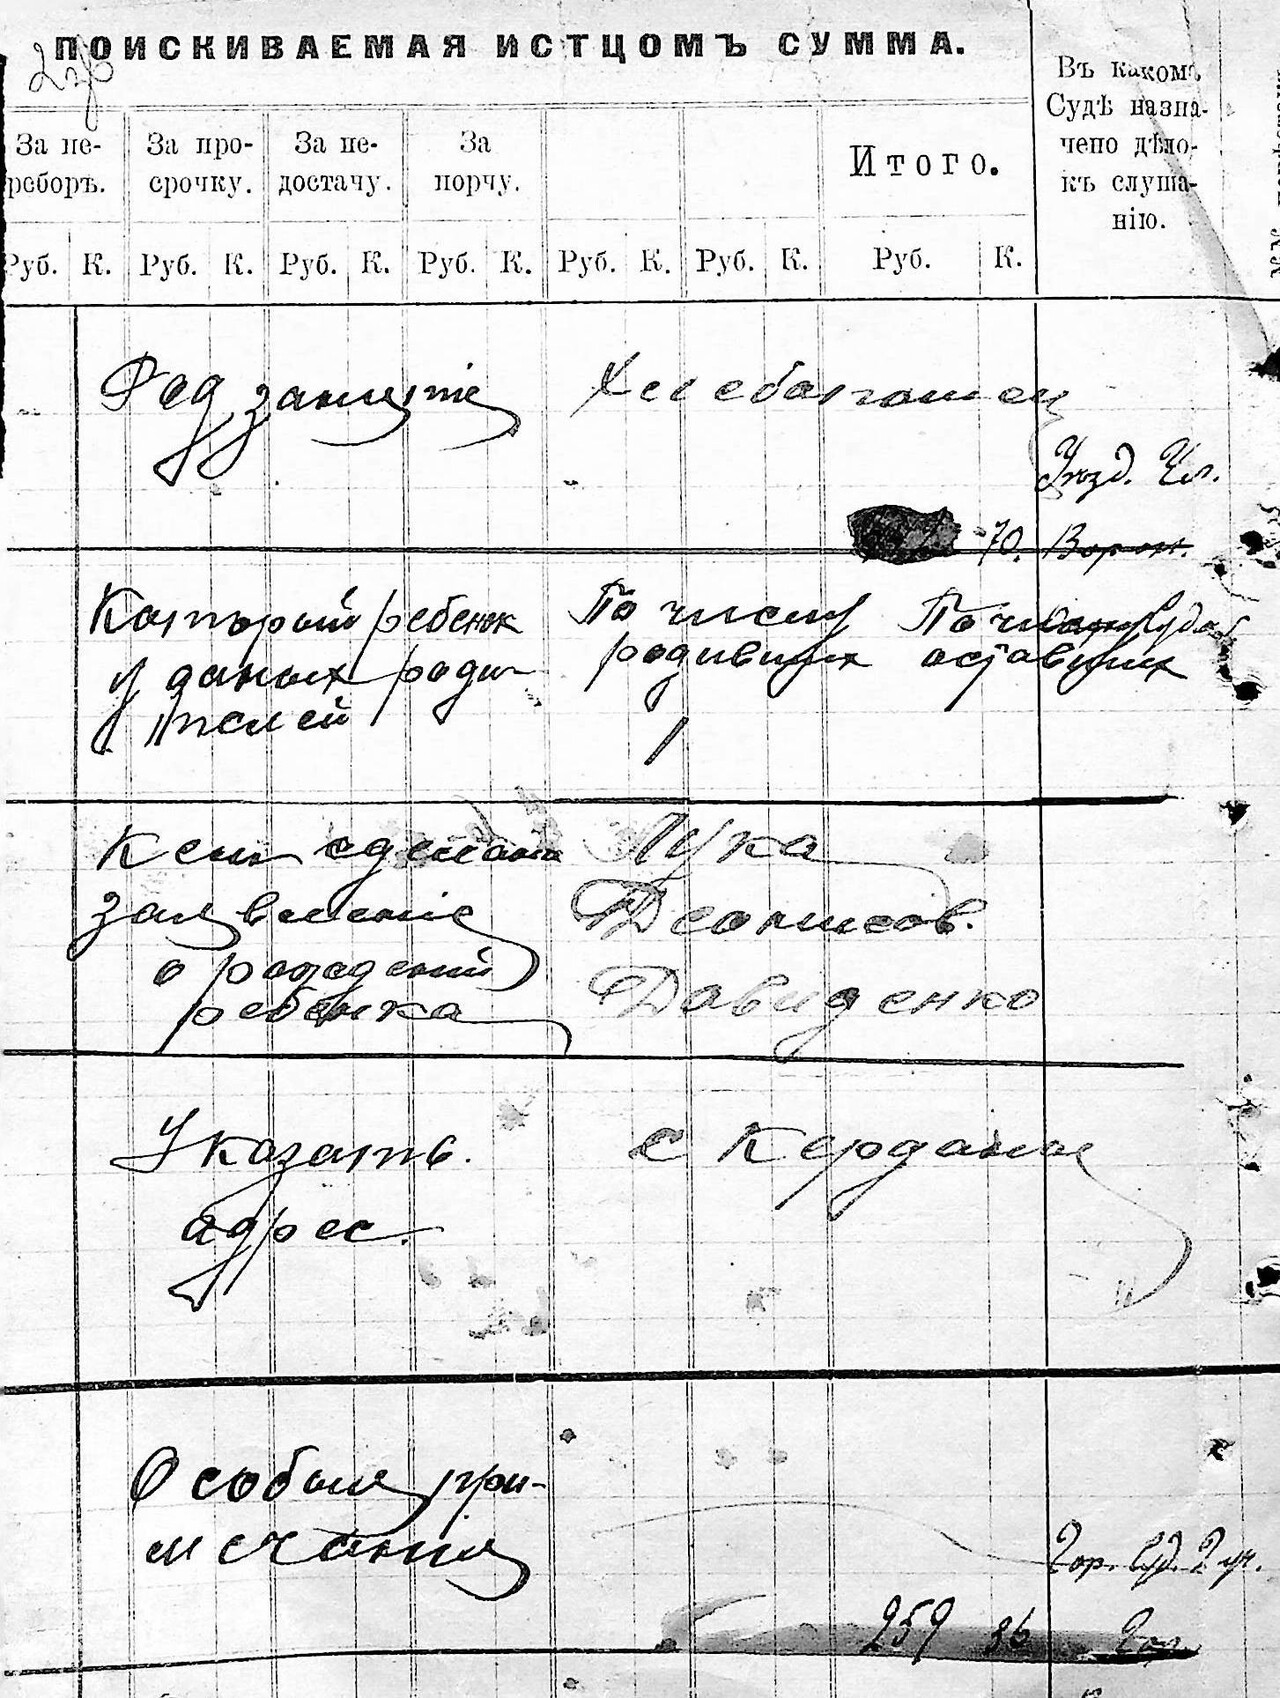 ПОИСКИВАЕМАЯ ИСТЦОМЪ СУММА.
За пе-
реборъ.
За про-
срочку.
За не-
достачу.
За
порчу.
Итого.
Въ какомъ
Судѣ назна-
чено дѣло-
къ слуша-
нію.
Руб. К. Руб. К. Руб. К. Руб. К. Руб. К. Руб. К. Руб. К.
Род занятіе
Хлебопашец
Уѣзд. Чл.
70.
Который ребенок
у даных роди-
телей
По числу
родивших
1
По числу
оставших
Кем сделано
заявление
о рождений
ребенка
Лука
Деонисов.
Давиденко
Указать.
адрес.
с Кердана
Особыя при-
мечания
Гор. Суд. 2 уч.
259 36